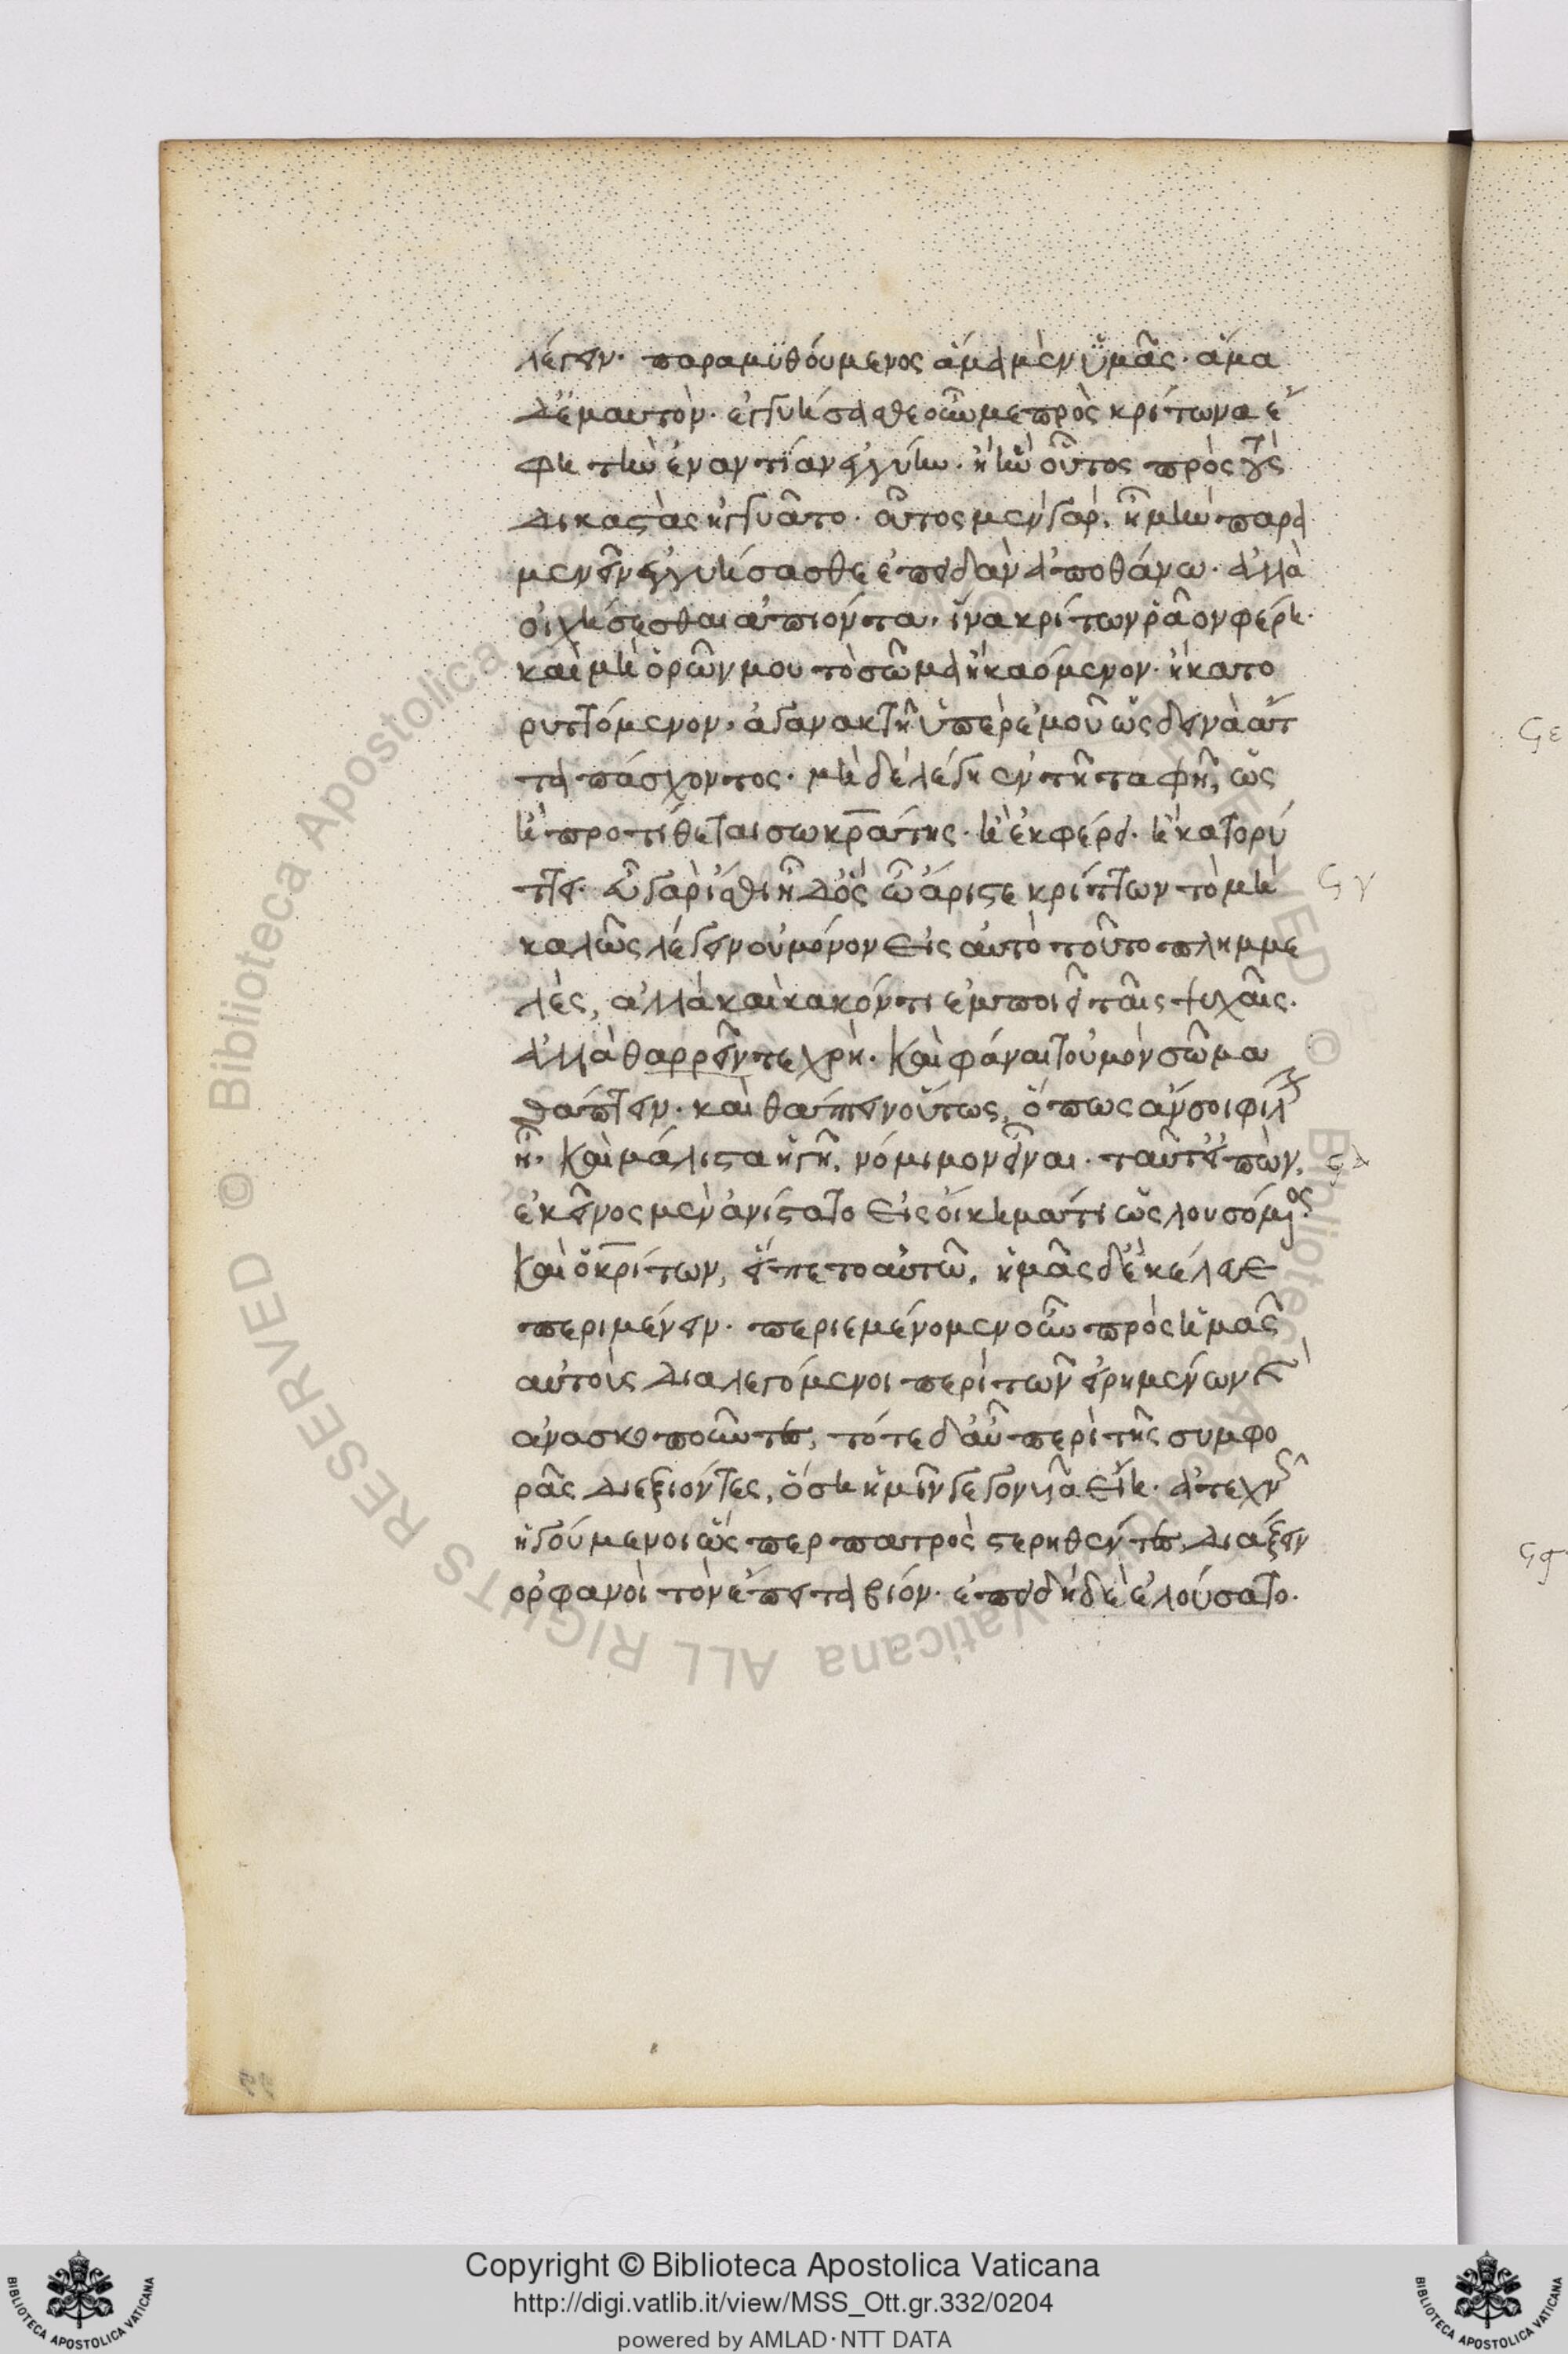 λέγειν· παραμυθούμενος ἅμα μὲν ὑμᾶς· ἅμα
δ' ἐμαυτόν· ἐγγυήσασθε οὖν με πρὸς κρίτωνα ἔ
φη τὴν ἐναντίαν ἐγγύην· ἢ ἣν οὗτος πρὸς τοὺς
δικαστὰς ἠγγυᾶτο· οὗτος μὲν γὰρ, ἦ μὴν παρα
μενεῖν ἐγγυήσασθε ἐπειδὰν ἀποθάνω· ἀλλὰ
οἰχήσεσθαι ἀπιόντα, ἵνα κρίτων ῥᾶον φέρη·
καὶ μὴ ὁρῶν μου τὸ σῶμα ἢ καόμενον· ἢ κατο
ρυττόμενον, ἀγανακτῆ ὑπὲρ ἐμοῦ ὡς δεινὰ ἄτ
τα πάσχοντος· μὴ δὲ λέγη ἐν τῆ ταφῆ, ὡς
ἢ προτίθεται σωκράτης· ἢ ἐκφέρει· ἢ κατορύ
ττει· εὖ γὰρ ἴσθι ἦ δ' ὃς ὦ ἄριστε κρίτων τὸ μὴ
καλῶς λέγειν οὐ μόνον εἰς αὐτὸ τοῦτο πλημμε
λές, ἀλλὰ καὶ κακόν τι ἐμποιεῖ ταῖς ψυχαῖς.
ἀλλὰ θαρρεῖν τε χρή· καὶ φάναι τοὐμὸν σῶμα
θάπτειν· καὶ θάπτειν οὕτως, ὅπως ἄν σοι φίλον
ῆ· καὶ μάλιστα ἡγῆ, νόμιμον εἶναι· ταῦτ' εἰπὼν,
ἐκεῖνος μὲν ἀνίστατο εἰς οἴκημά τι ὡς λουσόμενος.
καὶ ὁ κρίτων, εἵπετο αὐτῶ, ἡμᾶς δ' ἐκέλευε
περιμένειν· περιεμένομεν οὖν πρὸς ἡμᾶς
αὐτοὺς διαλεγόμενοι περὶ τῶν εἰρημένων καὶ
ἀνασκοποῦντες, τότε δ' αὖ περὶ τῆς συμφο
ρᾶς διεξιόντες, ὅση ἡμῖν γεγονυῖα εἴη· ἀτεχνῶς
ἡγούμενοι ὥσπερ πατρὸς στερηθέντες, διάξειν
ὀρφανοὶ τὸν ἔπειτα βίον· ἐπειδὴ δὲ ἐλούσατο.
Copyright © Biblioteca Apostolica Vaticana
http://digi.vatlib.it/view/MSS_Ott.gr.332/0204
powered by AMLAD·NTT DATA